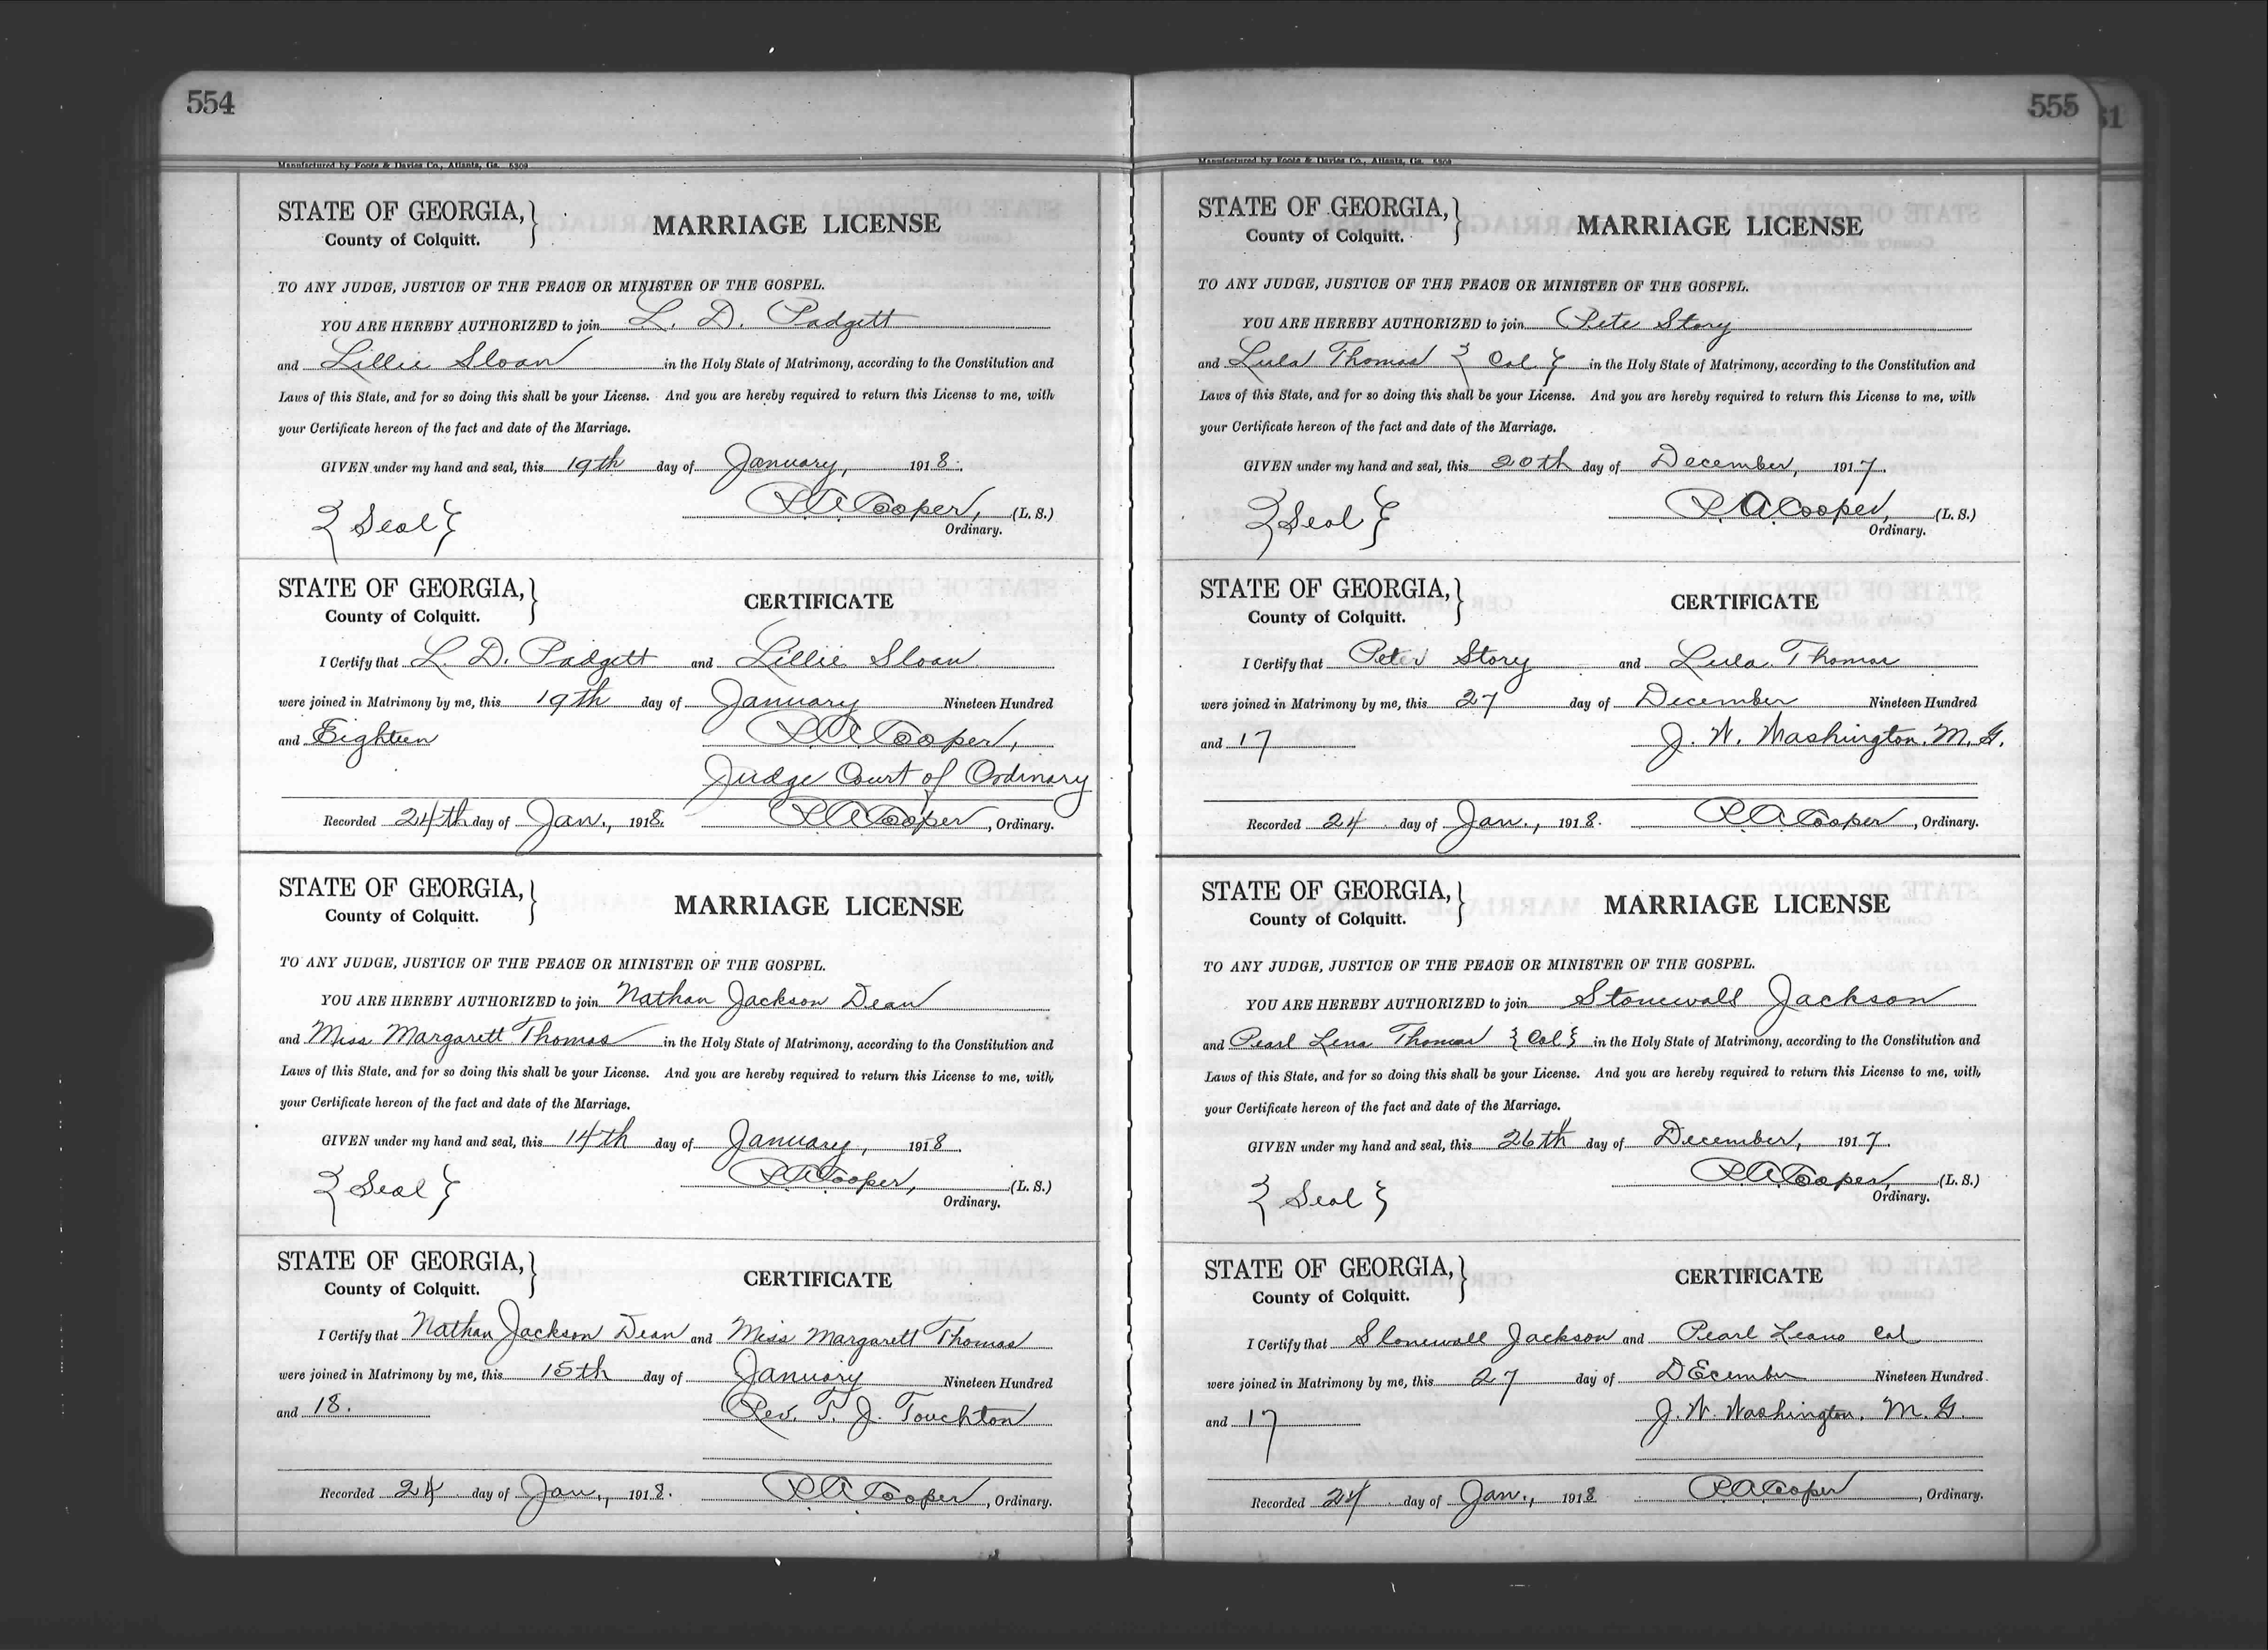 554
Manufactured by Foote & Davies Co., Atlanta, Ga. 5309
STATE OF GEORGIA,
County of Colquitt.
MARRIAGE LICENSE
TO ANY JUDGE, JUSTICE OF THE PEACE OR MINISTER OF THE GOSPEL.
YOU ARE HEREBY AUTHORIZED to join L. D. Padgett
and Lillie Sloan in the Holy State of Matrimony, according to the Constitution and
Laws of this State, and for so doing this shall be your License. And you are hereby required to return this License to me, with
your Certificate hereon of the fact and date of the Marriage.
GIVEN under my hand and seal, this 19th day of January, 1918.
{Seal} P.A. Cooper, (L. S.)
Ordinary.
STATE OF GEORGIA,
County of Colquitt.
CERTIFICATE
I Certify that L. D. Padgett and Lillie Sloan
were joined in Matrimony by me, this 19th day of January Nineteen Hundred
and Eighteen P.A. Cooper,
Judge Court of Ordinary
Recorded 24th day of Jan., 1918. P.A. Cooper, Ordinary.
STATE OF GEORGIA,
County of Colquitt.
MARRIAGE LICENSE
TO ANY JUDGE, JUSTICE OF THE PEACE OR MINISTER OF THE GOSPEL.
YOU ARE HEREBY AUTHORIZED to join Nathan Jackson Dean
and Miss Margarett Thomas in the Holy State of Matrimony, according to the Constitution and
Laws of this State, and for so doing this shall be your License. And you are hereby required to return this License to me, with
your Certificate hereon of the fact and date of the Marriage.
GIVEN under my hand and seal, this 14th day of January, 1918.
{Seal} P.A. Cooper, (L. S.)
Ordinary.
STATE OF GEORGIA,
County of Colquitt.
CERTIFICATE
I Certify that Nathan Jackson Dean and Miss Margarett Thomas
were joined in Matrimony by me, this 15th day of January Nineteen Hundred
and 18. Rev. T. J. Touchton
Recorded 24 day of Jan., 1918. P.A. Cooper, Ordinary.
555
31
Manufactured by Foote & Davies Co., Atlanta, Ga. 5309
STATE OF GEORGIA,
County of Colquitt.
MARRIAGE LICENSE
TO ANY JUDGE, JUSTICE OF THE PEACE OR MINISTER OF THE GOSPEL.
YOU ARE HEREBY AUTHORIZED to join Pete Story
and Lula Thomas {Col} in the Holy State of Matrimony, according to the Constitution and
Laws of this State, and for so doing this shall be your License. And you are hereby required to return this License to me, with
your Certificate hereon of the fact and date of the Marriage.
GIVEN under my hand and seal, this 20th day of December, 1917.
{Seal} P.A. Cooper, (L. S.)
Ordinary.
STATE OF GEORGIA,
County of Colquitt.
CERTIFICATE
I Certify that Peter Story and Lula Thomas
were joined in Matrimony by me, this 27 day of December Nineteen Hundred
and 17 J. W. Washington. M. G.
Recorded 24 day of Jan., 1918. P.A. Cooper, Ordinary.
STATE OF GEORGIA,
County of Colquitt.
MARRIAGE LICENSE
TO ANY JUDGE, JUSTICE OF THE PEACE OR MINISTER OF THE GOSPEL.
YOU ARE HEREBY AUTHORIZED to join Stonewall Jackson
and Pearl Lena Thomas {Col} in the Holy State of Matrimony, according to the Constitution and
Laws of this State, and for so doing this shall be your License. And you are hereby required to return this License to me, with
your Certificate hereon of the fact and date of the Marriage.
GIVEN under my hand and seal, this 26th day of December, 1917.
{Seal} P.A. Cooper, (L. S.)
Ordinary.
STATE OF GEORGIA,
County of Colquitt.
CERTIFICATE
I Certify that Stonewall Jackson and Pearl Leano Col
were joined in Matrimony by me, this 27 day of DEcember Nineteen Hundred
and 17 J. W. Washington. M. G.
Recorded 24 day of Jan., 1918 P.A. Cooper, Ordinary.